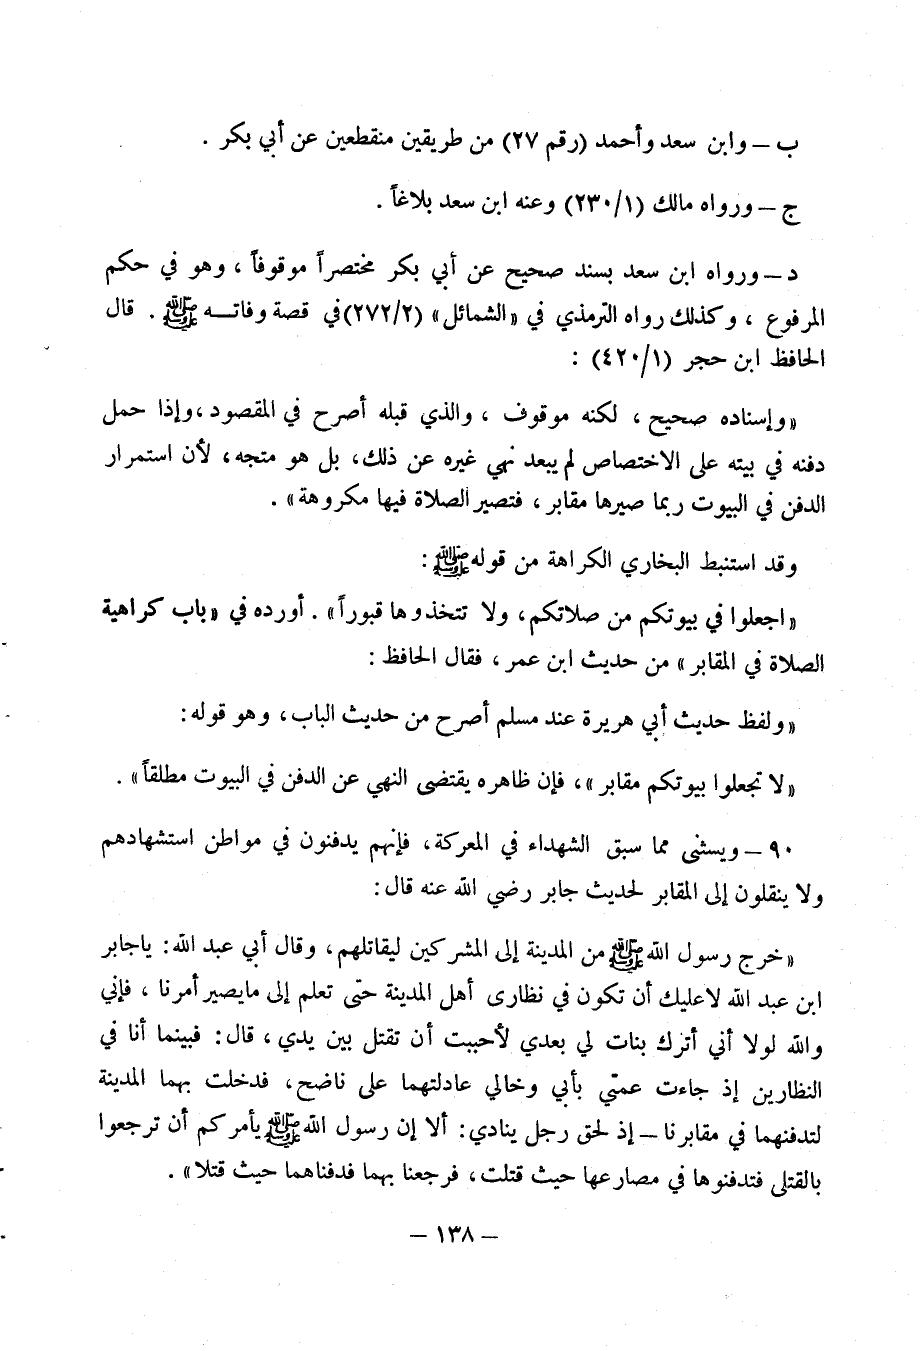 ب — وابن سعد وأحمد (رقم ٢٧) من طريقين منقطعين عن أبي بكر .
ج — ورواه مالك (٢٣٠/١) وعنه ابن سعد بلاغاً .
د — ورواه ابن سعد بسند صحيح عن أبي بكر مختصراً موقوفاً ، وهو في حكم
المرفوع ، وكذلك رواه الترمذي في «الشمائل» (٢٧٢/٢)في قصة وفاتـــه ﷺ . قال
الحافظ ابن حجر (٤٢٠/١) :
«وإسناده صحيح ، لكنه موقوف ، والذي قبله أصرح في المقصود ،وإذا حمل
دفنه في بيته على الاختصاص لم يبعد نهي غيره عن ذلك، بل هو متجه، لأن استمرار
الدفن في البيوت ربما صيرها مقابر ، فتصير الصلاة فيها مكروهة» .
وقد استنبط البخاري الكراهة من قوله ﷺ :
«اجعلوا في بيوتكم من صلاتكم، ولا تتخذوها قبوراً» . أورده في «باب كراهية
الصلاة في المقابر» من حديث ابن عمر ، فقال الحافظ :
«ولفظ حديث أبي هريرة عند مسلم أصرح من حديث الباب، وهو قوله:
«لا تجعلوا بيوتكم مقابر»، فإن ظاهره يقتضى النهي عن الدفن في البيوت مطلقاً» .
٩٠ — ويستثنى مما سبق الشهداء في المعركة، فإنهم يدفنون في مواطن استشهادهم
ولا ينقلون إلى المقابر لحديث جابر رضي الله عنه قال:
«خرج رسول الله ﷺ من المدينة إلى المشركين ليقاتلهم، وقال أبي عبد الله: ياجابر
ابن عبد الله لاعليك أن تكون في نظارى أهل المدينة حتى تعلم إلى مايصير أمرنا ، فإني
والله لولا أني أترك بنات لي بعدي لأحببت أن تقتل بين يدي ، قال: فبينما أنا في
النظارين إذ جاءت عمتي بأبي وخالي عادلتهما على ناضح، فدخلت بهما المدينة
لتدفنهما في مقابرنا — إذ لحق رجل ينادي: ألا إن رسول الله ﷺ يأمركم أن ترجعوا
بالقتلى فتدفنوها في مصارعها حيث قتلت، فرجعنا بهما فدفناهما حيث قتلا» .
— ١٣٨ —